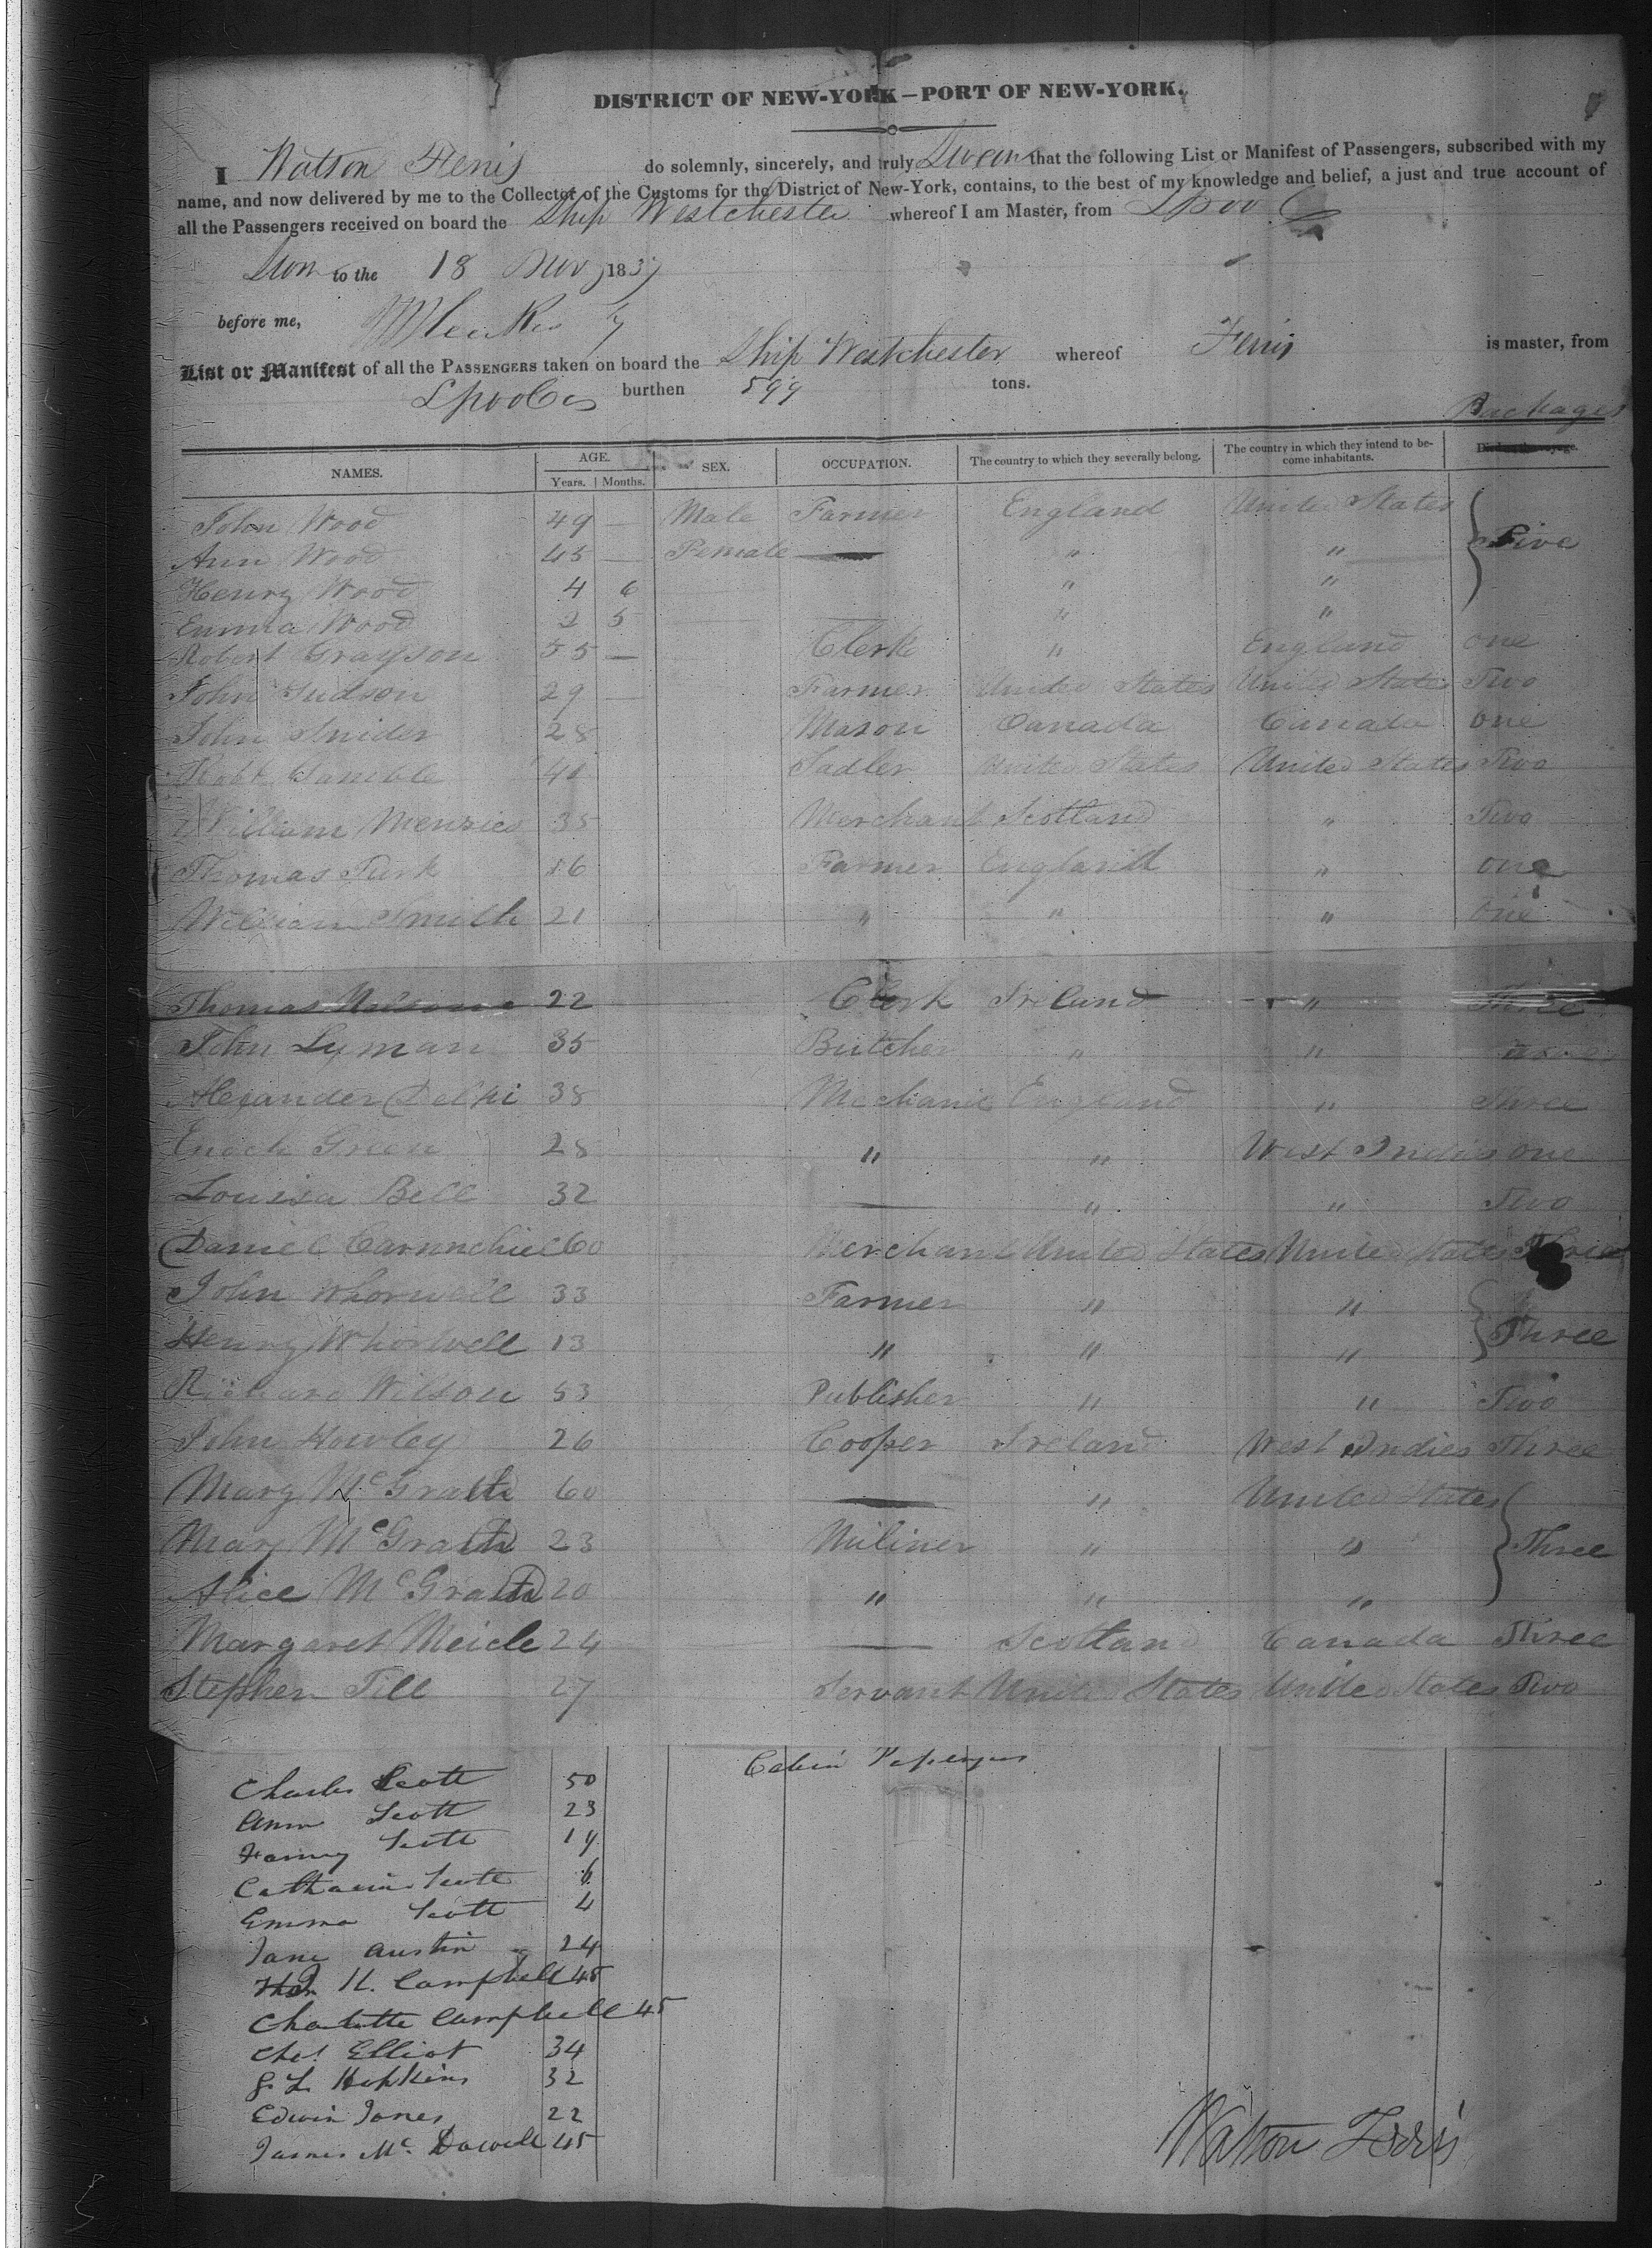 DISTRICT OF NEW-YORK—PORT OF NEW-YORK.
I Watson Ferris do solemnly, sincerely, and truly Swear that the following List or Manifest of Passengers, subscribed with my
name, and now delivered by me to the Collector of the Customs for the District of New-York, contains, to the best of my knowledge and belief, a just and true account of
all the Passengers received on board the Ship Westchester whereof I am Master, from Lpool
Sworn to the 18 Nov 1837
before me,
List or Manifest of all the PASSENGERS taken on board the Ship Westchester whereof Ferris is master, from
burthen 599 tons.
Packages
NAMES. AGE. Years. Months. SEX. OCCUPATION. The country to which they severally belong. The country in which they intend to become inhabitants. Died on the voyage.
John Wood 49 — Male Farmer England United States
Ann Wood 45 — Female — " " Five
Henry Wood 4 6 " "
Emma Wood 2 5 " "
Robert Grayson 55 — Clerk " England One
John Judson 29 — Farmer United States United States Two
John Snider 28 Mason Canada Canada One
Robt Gamble 40 Sadler United States United States Two
William Menzies 35 Merchant Scotland " Two
Thomas Turk 16 Farmer England " One
William Smith 21 " " " One
Thomas 22 Clerk Ireland " Three
John Lyman 35 Butcher " "
Alexander 38 Mechanic England " Three
Enoch Green 28 " " West Indies One
Louisa Bell 32 — " " Two
Daniel 60 Merchant United States United States Three
John Whorwell 33 Farmer " "
Henry Whorwell 13 " " " Three
Richard Wilson 53 Publisher " " Two
John Howley 26 Cooper Ireland West Indies Three
Mary McGrath 60 — " United States
Mary McGrath 23 Miliner " " Three
Alice McGrath 20 " " "
Margaret Meicle 24 — Scotland Canada Three
Stephen Till 27 Servant United States United States Two
Cabin Passengers
Charles Scott 50
Ann Scott 23
Fanny Scott 19
Catharine Scott 6
Emma Scott 4
Jane Austin 24
H. Campbell 45
Charlotte Campbell 45
Chs. Elliot 34
Hopkins 32
Edwin Jones 22
James Mc Dowell 45
Watson Ferris